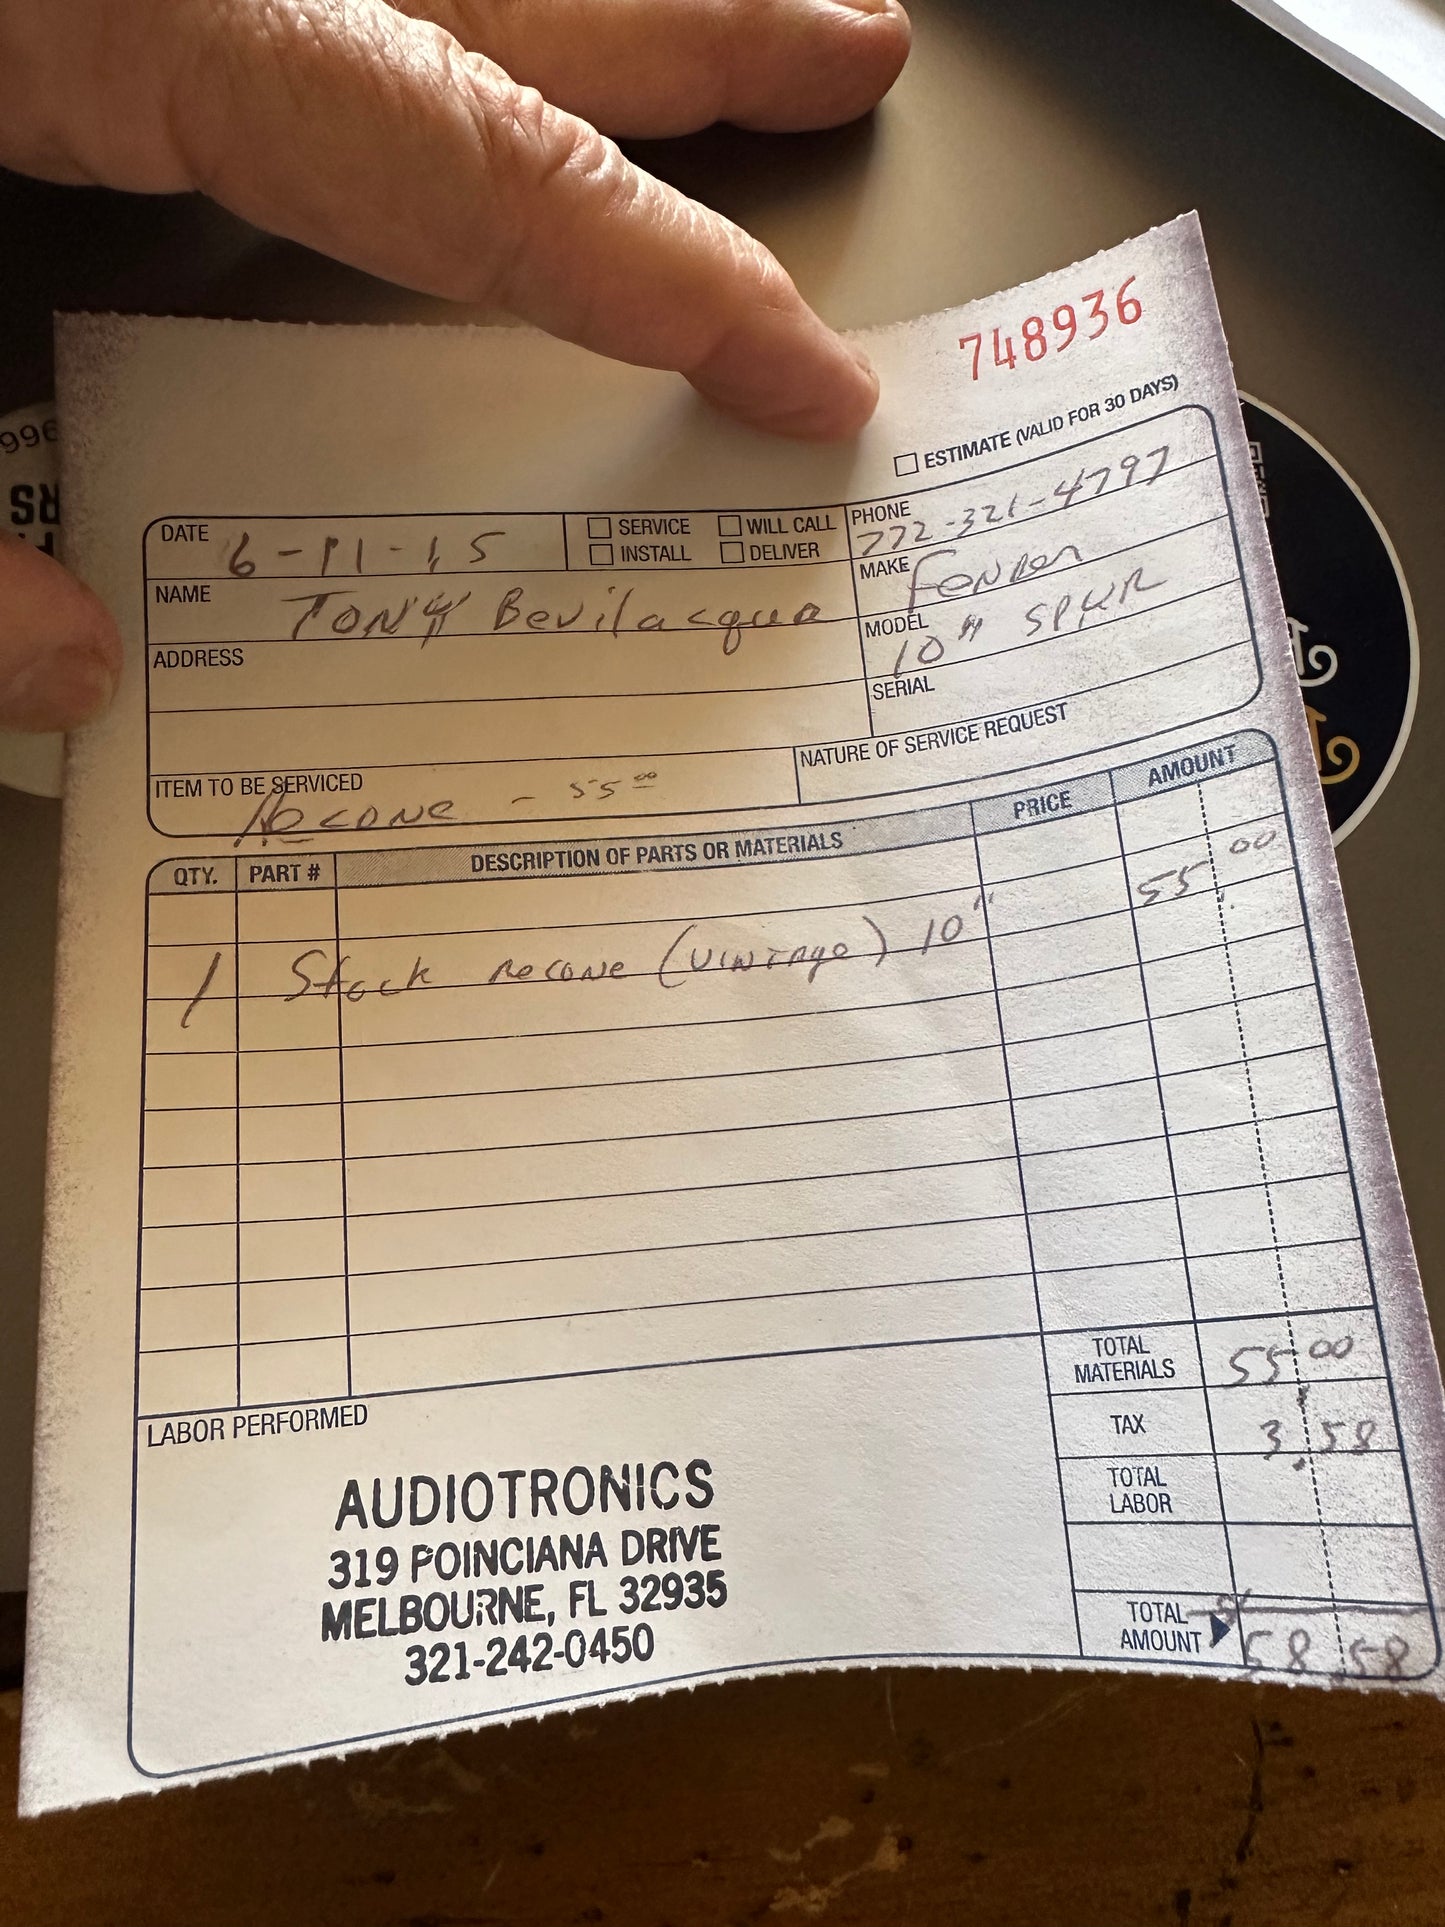 748936
ESTIMATE (VALID FOR 30 DAYS)
DATE 6-11-15
SERVICE WILL CALL
INSTALL DELIVER
PHONE 772-321-4797
NAME TONY Bevilacqua
MAKE Fender
ADDRESS
MODEL 10" SPKR
SERIAL
ITEM TO BE SERVICED
Recone - 55 00
NATURE OF SERVICE REQUEST
QTY. PART # DESCRIPTION OF PARTS OR MATERIALS PRICE AMOUNT
1 Stock recone (vintage) 10" 55.00
TOTAL MATERIALS 55.00
TAX 3.58
TOTAL LABOR
TOTAL AMOUNT 58.58
LABOR PERFORMED
AUDIOTRONICS
319 POINCIANA DRIVE
MELBOURNE, FL 32935
321-242-0450
996
RS